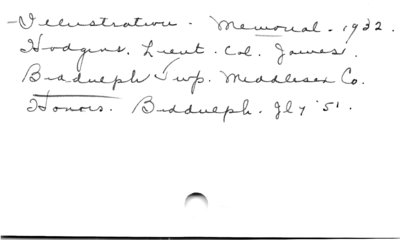 -Illustration. Memorial. 1932.
Hodgins. Lieut. Col. James.
Biddulph Twp. Middlesex Co.
Honors. Biddulph. Jly '51.